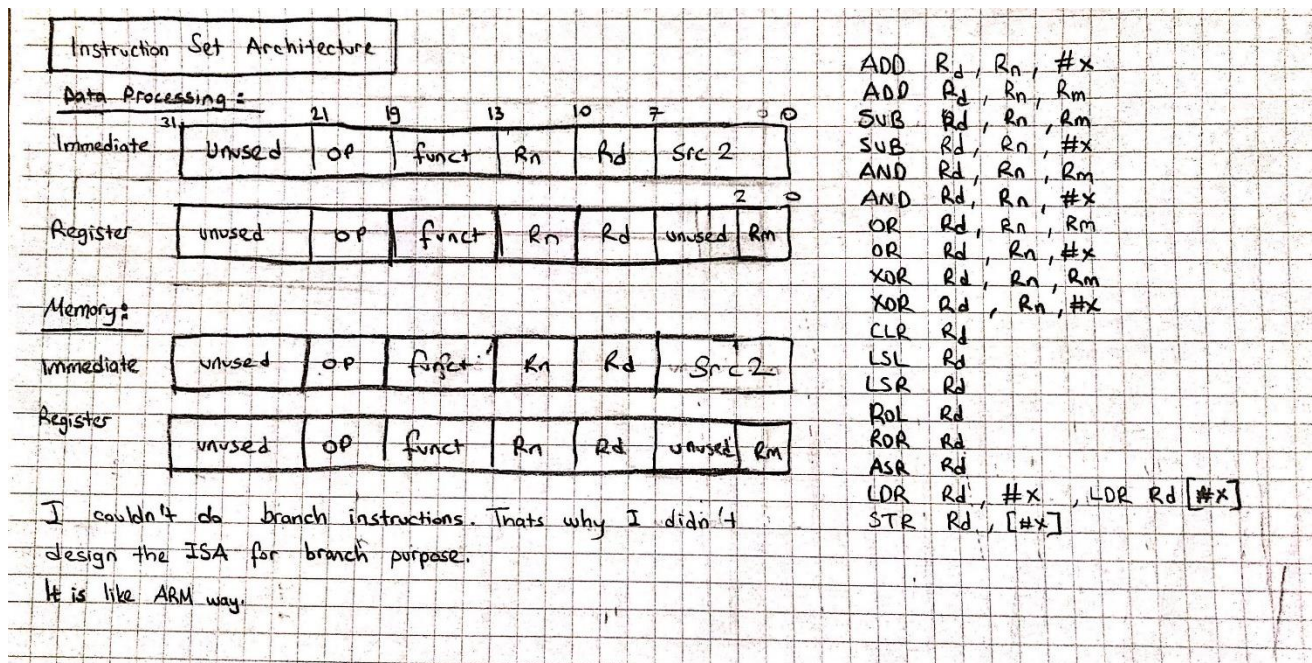 Instruction Set Architecture
Data Processing:
31 21 19 13 10 7 0
Immediate unused OP funct Rn Rd Src 2
2 0
Register unused OP funct Rn Rd unused Rm
Memory:
Immediate unused OP funct Rn Rd Src 2
Register unused OP funct Rn Rd unused Rm
I couldn't do branch instructions. Thats why I didn't
design the ISA for branch purpose.
It is like ARM way.
ADD Rd, Rn, #x
ADD Rd, Rn, Rm
SUB Rd, Rn, Rm
SUB Rd, Rn, #x
AND Rd, Rn, Rm
AND Rd, Rn, #x
OR Rd, Rn, Rm
OR Rd, Rn, #x
XOR Rd, Rn, Rm
XOR Rd, Rn, #x
CLR Rd
LSL Rd
LSR Rd
ROL Rd
ROR Rd
ASR Rd
LDR Rd, #x, LDR Rd [#x]
STR Rd, [#x]